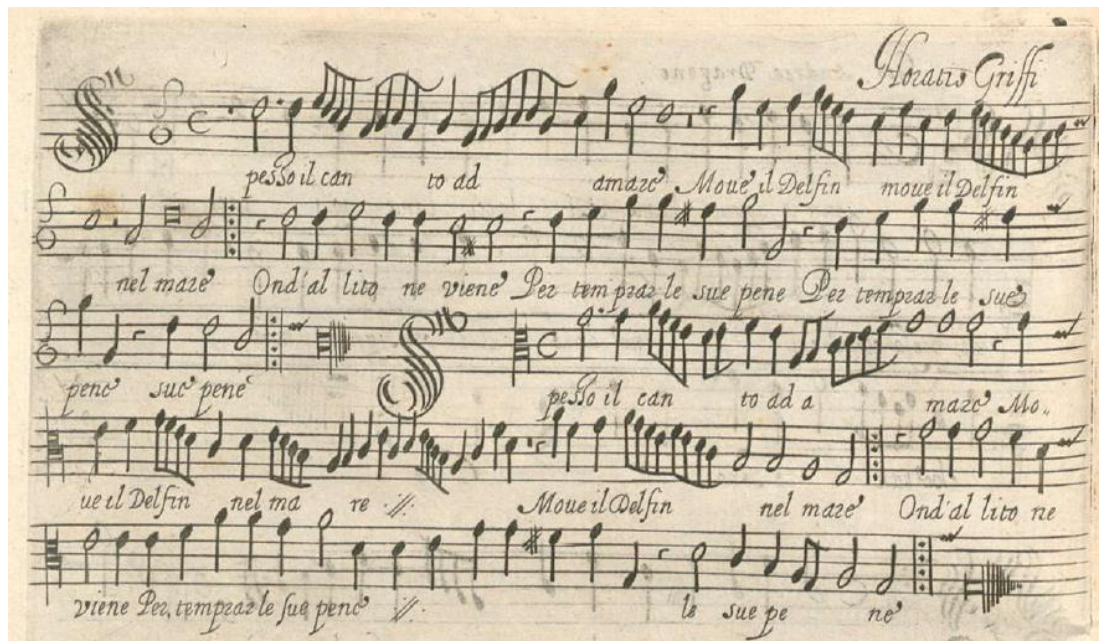 Horatio Griffi
S pesso il can to ad amare Moue il Delfin moue il Delfin
nel mare Ond'al lito ne viene Per temprar le sue pene Per temprar le sue
pene sue pene
S pesso il can to ad a mare Mo..
ue il Delfin nel ma re :||: Moue il Delfin nel mare Ond'al lito ne
viene Per temprar le sue pene :||: le sue pe ne